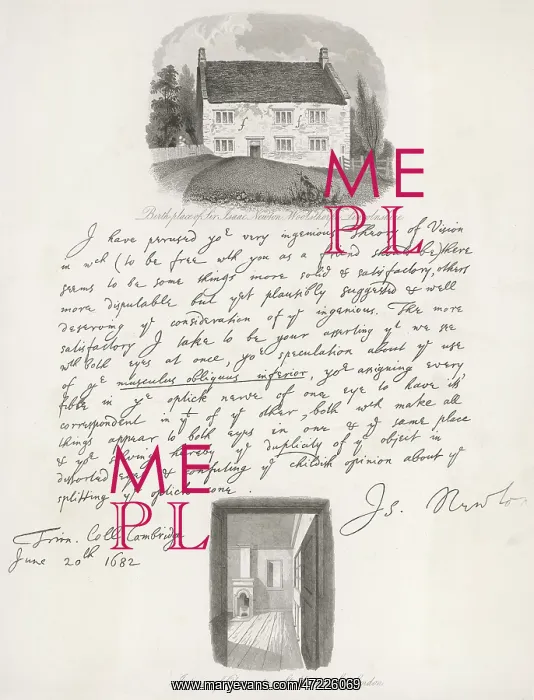 Birthplace of Sir Isaac Newton, Woolsthorpe, Lincolnshire
ME
PL
I have perused yoʳ very ingenious Theory of Vision
in wᶜʰ (to be free wᵗʰ you as a friend should be) there
seems to be some things more solid & satisfactory, others
more disputable but yet plausibly suggested & well
deserving yᵉ consideration of yᵉ ingenious. The more
satisfactory I take to be your asserting yᵗ we see
wᵗʰ both eyes at once, yoʳ speculation about yᵉ use
of yᵉ musculus obliquus inferior, yoʳ assigning every
fibre in yᵉ optick nerve of one eye to have its
correspondent in yᵗ of yᵉ other, both wᶜʰ make all
things appear to both eyes in one & yᵉ same place
& yoʳ solving hereby yᵉ duplicity of yᵉ object in
distorted eyes & confuting yᵉ childish opinion about yᵉ
splitting yᵉ optick cone.
ME
PL
Is. Newton
Trin. Coll. Cambridge
June 20ᵗʰ 1682
www.maryevans.com/47226069